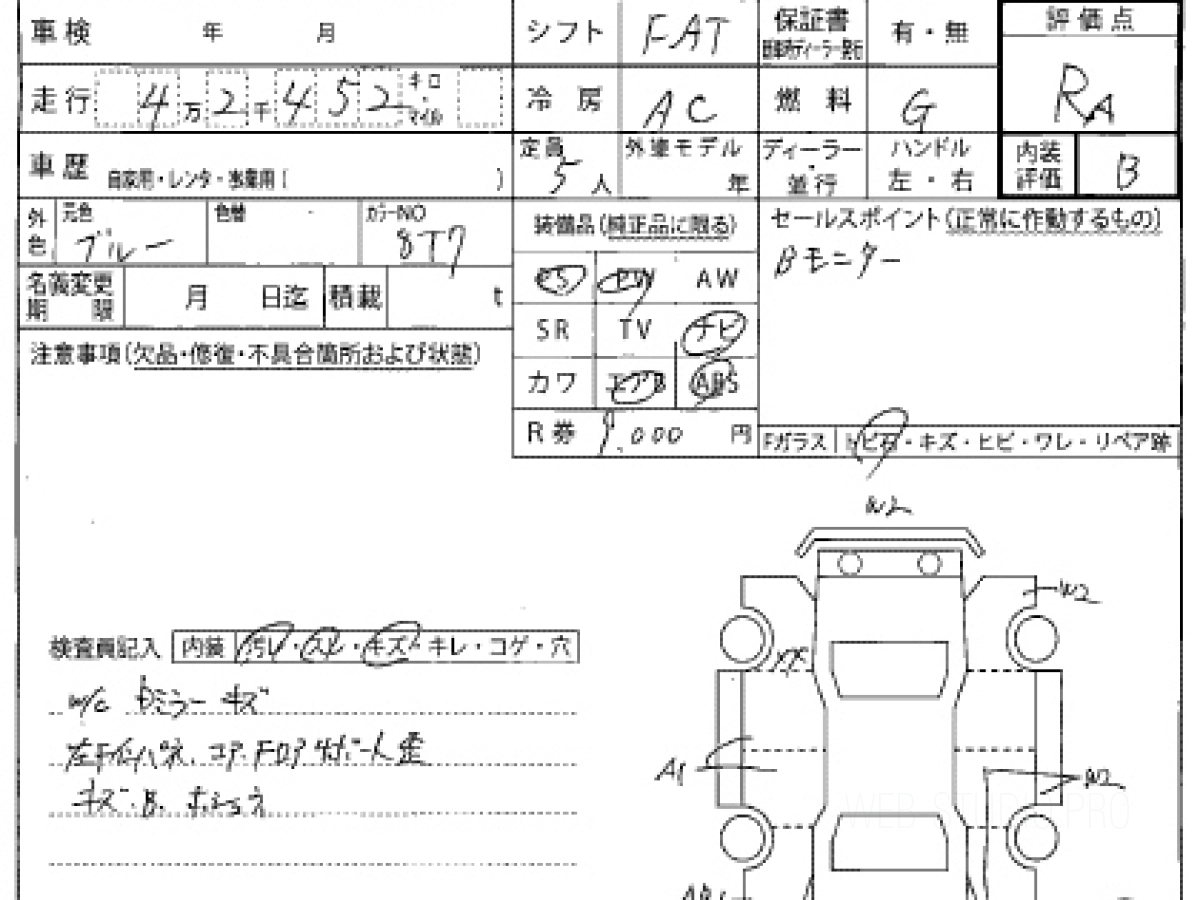 車検 年 月 シフト FAT 保証書 有・無 評価点
走行 4万2千452 キロ・マイル 冷房 AC 燃料 G RA
車歴 自家用・レンタ・事業用( ) 定員 5人 外車モデル 年 ディーラー・並行 ハンドル 左・右 内装評価 B
外色 元色 ブルー 色替 カラーNO 8T7
装備品(純正品に限る) セールスポイント(正常に作動するもの)
名義変更期限 月 日迄 積載 t
PS PW AW Bモニター
SR TV ナビ
注意事項(欠品・修復・不具合箇所および状態)
カワ エアB ABS
R券 9,000 円 Fガラス トビ石・キズ・ヒビ・ワレ・リペア跡
W2
W2
検査員記入 内装 汚レ・スレ・キズ・キレ・コゲ・穴
W/C ミラー キズ
A1 W2
キズ・B.
WEB STUDIO PRO